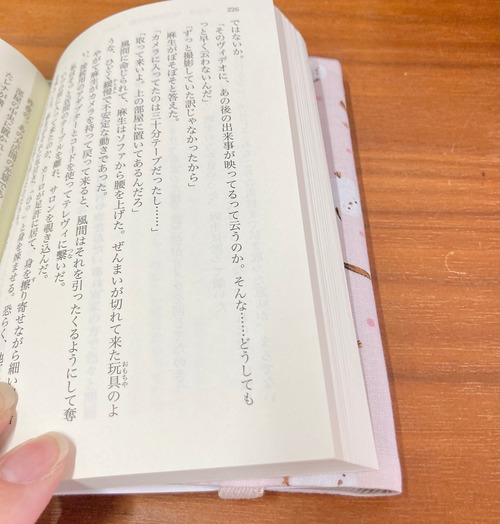 226
ではないか。
「そのヴィデオに、あの後の出来事が映ってるって云うのか。そんな……どうしても
っと早く云わないんだ」
「ずっと撮影していた訳じゃなかったから」
麻生がぼそぼそと答えた。
「カメラに入ってたのは三十分テープだったし……」
「取って来いよ。上の部屋に置いてあるんだろ」
風間に命じられて、麻生はソファから腰を上げた。ぜんまいが切れて来た玩具のよ
うな、ひどく緩慢で不安定な動きであった。
やがて麻生がカメラを持って戻って来ると、風間はそれを引ったくるようにして奪
アダプターとコードを使ってテレヴィに繋いだ。
テーブルを離れ、サロンを覗き込んだ。
足許に居て、身を擦り寄せながら細い
と身を竦ませる。恐らく、